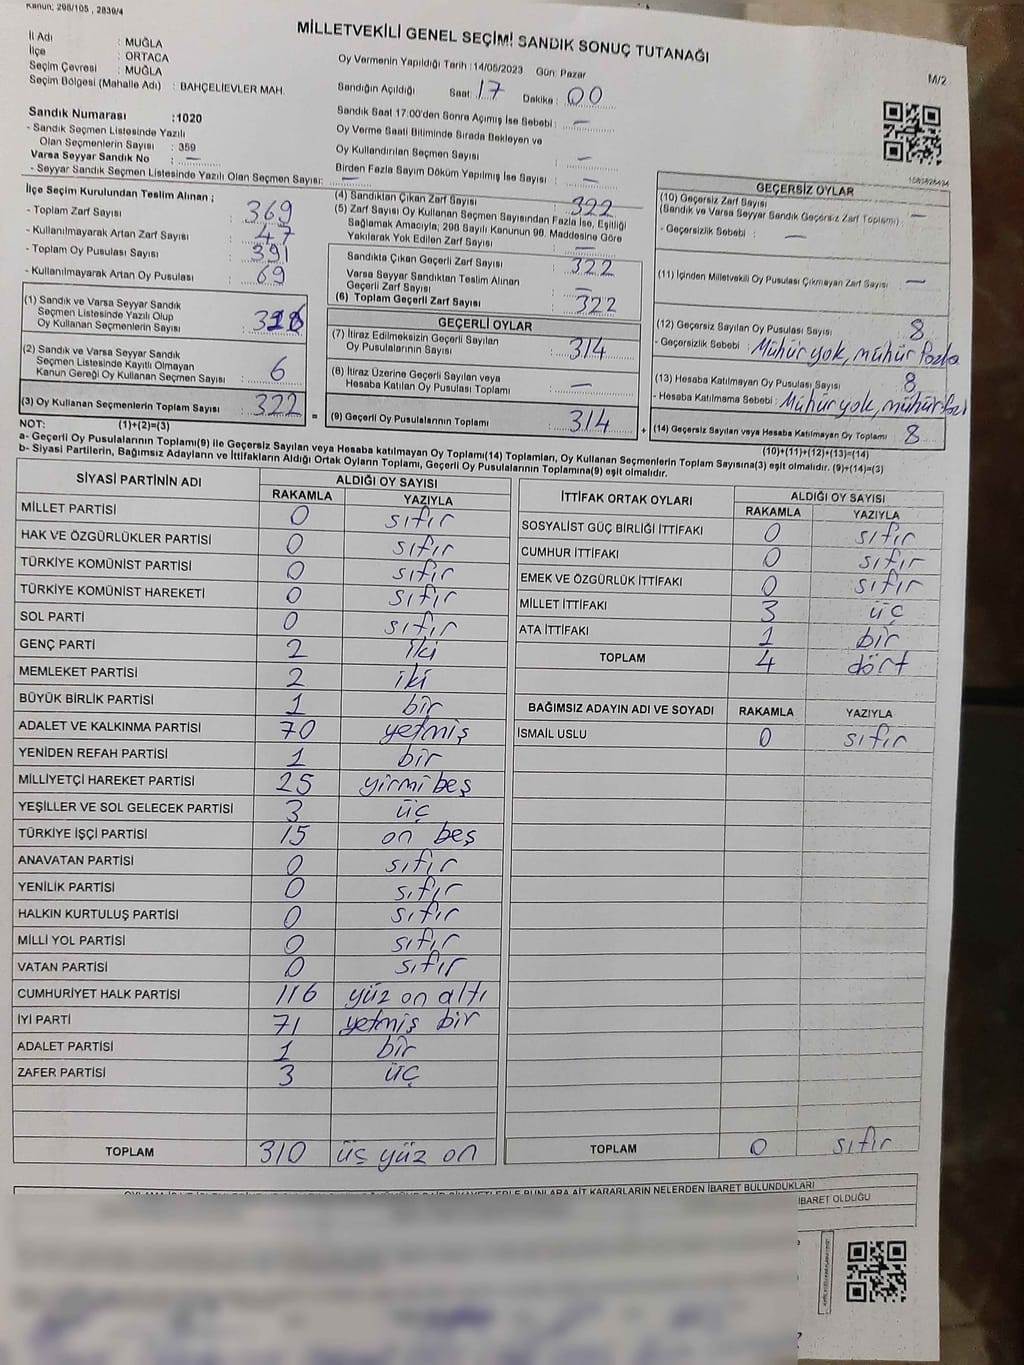 Kanun: 298/105 , 2839/4
MİLLETVEKİLİ GENEL SEÇİMİ SANDIK SONUÇ TUTANAĞI
M/2
İl Adı : MUĞLA
İlçe : ORTACA
Seçim Çevresi : MUĞLA
Seçim Bölgesi (Mahalle Adı) : BAHÇELİEVLER MAH.
Oy Vermenin Yapıldığı Tarih :14/05/2023 Gün: Pazar
Sandığın Açıldığı Saat: 17 Dakika : 00
Sandık Saat 17:00'den Sonra Açımış İse Sebebi : —
Oy Verme Saati Bitiminde Sırada Bekleyen ve
Oy Kullandırılan Seçmen Sayısı : —
Birden Fazla Sayım Döküm Yapılmış İse Sayısı : —
Sandık Numarası :1020
- Sandık Seçmen Listesinde Yazılı
Olan Seçmenlerin Sayısı : 359
Varsa Seyyar Sandık No : —
- Seyyar Sandık Seçmen Listesinde Yazılı Olan Seçmen Sayısı: —
İlçe Seçim Kurulundan Teslim Alınan ;
- Toplam Zarf Sayısı : 369
- Kullanılmayarak Artan Zarf Sayısı : 47
- Toplam Oy Pusulası Sayısı : 391
- Kullanılmayarak Artan Oy Pusulası : 69
(1) Sandık ve Varsa Seyyar Sandık
Seçmen Listesinde Yazılı Olup
Oy Kullanan Seçmenlerin Sayısı :
(2) Sandık ve Varsa Seyyar Sandık
Seçmen Listesinde Kayıtlı Olmayan
Kanun Gereği Oy Kullanan Seçmen Sayısı : 6
(3) Oy Kullanan Seçmenlerin Toplam Sayısı : 322 =
(4) Sandıktan Çıkan Zarf Sayısı : 322
(5) Zarf Sayısı Oy Kullanan Seçmen Sayısından Fazla İse, Eşitliği
Sağlamak Amacıyla; 298 Sayılı Kanunun 98. Maddesine Göre
Yakılarak Yok Edilen Zarf Sayısı : —
Sandıkta Çıkan Geçerli Zarf Sayısı : 322
Varsa Seyyar Sandıktan Teslim Alınan
Geçerli Zarf Sayısı : —
(6) Toplam Geçerli Zarf Sayısı : 322
GEÇERLİ OYLAR
(7) İtiraz Edilmeksizin Geçerli Sayılan
Oy Pusulalarının Sayısı : 314
(8) İtiraz Üzerine Geçerli Sayılan veya
Hesaba Katılan Oy Pusulası Toplamı : —
(9) Geçerli Oy Pusulalarının Toplamı : 314 +
GEÇERSİZ OYLAR
(10) Geçersiz Zarf Sayısı : —
(Sandık ve Varsa Seyyar Sandık Geçersiz Zarf Toplamı)
- Geçersizlik Sebebi : —
(11) İçinden Milletvekili Oy Pusulası Çıkmayan Zarf Sayısı : —
(12) Geçersiz Sayılan Oy Pusulası Sayısı : 8
- Geçersizlik Sebebi : Mühür yok, mühür fazla
(13) Hesaba Katılmayan Oy Pusulası Sayısı : 8
- Hesaba Katılmama Sebebi : Mühür yok, mühür fazl
(14) Geçersiz Sayılan veya Hesaba Katılmayan Oy Toplamı : 8
NOT: (1)+(2)=(3) (10)+(11)+(12)+(13)=(14)
a- Geçerli Oy Pusulalarının Toplamı(9) ile Geçersiz Sayılan veya Hesaba katılmayan Oy Toplamı(14) Toplamları, Oy Kullanan Seçmenlerin Toplam Sayısına(3) eşit olmalıdır. (9)+(14)=(3)
b- Siyasi Partilerin, Bağımsız Adayların ve İttifakların Aldığı Ortak Oyların Toplamı, Geçerli Oy Pusulalarının Toplamına(9) eşit olmalıdır.
SİYASİ PARTİNİN ADI ALDIĞI OY SAYISI
RAKAMLA YAZIYLA
MİLLET PARTİSİ 0 sıfır
HAK VE ÖZGÜRLÜKLER PARTİSİ 0 sıfır
TÜRKİYE KOMÜNİST PARTİSİ 0 sıfır
TÜRKİYE KOMÜNİST HAREKETİ 0 sıfır
SOL PARTİ 0 sıfır
GENÇ PARTİ 2 iki
MEMLEKET PARTİSİ 2 iki
BÜYÜK BİRLİK PARTİSİ 1 bir
ADALET VE KALKINMA PARTİSİ 70 yetmiş
YENİDEN REFAH PARTİSİ 1 bir
MİLLİYETÇİ HAREKET PARTİSİ 25 yirmi beş
YEŞİLLER VE SOL GELECEK PARTİSİ 3 üç
TÜRKİYE İŞÇİ PARTİSİ 15 on beş
ANAVATAN PARTİSİ 0 sıfır
YENİLİK PARTİSİ 0 sıfır
HALKIN KURTULUŞ PARTİSİ 0 sıfır
MİLLİ YOL PARTİSİ 0 sıfır
VATAN PARTİSİ 0 sıfır
CUMHURİYET HALK PARTİSİ 116 yüz on altı
İYİ PARTİ 71 yetmiş bir
ADALET PARTİSİ 1 bir
ZAFER PARTİSİ 3 üç
TOPLAM 310 üç yüz on
İTTİFAK ORTAK OYLARI ALDIĞI OY SAYISI
RAKAMLA YAZIYLA
SOSYALİST GÜÇ BİRLİĞİ İTTİFAKI 0 sıfır
CUMHUR İTTİFAKI 0 sıfır
EMEK VE ÖZGÜRLÜK İTTİFAKI 0 sıfır
MİLLET İTTİFAKI 3 üç
ATA İTTİFAKI 1 bir
TOPLAM 4 dört
BAĞIMSIZ ADAYIN ADI VE SOYADI RAKAMLA YAZIYLA
İSMAİL USLU 0 sıfır
TOPLAM 0 sıfır
BUNLARA AİT KARARLARIN NELERDEN İBARET BULUNDUKLARI
İBARET OLDUĞU